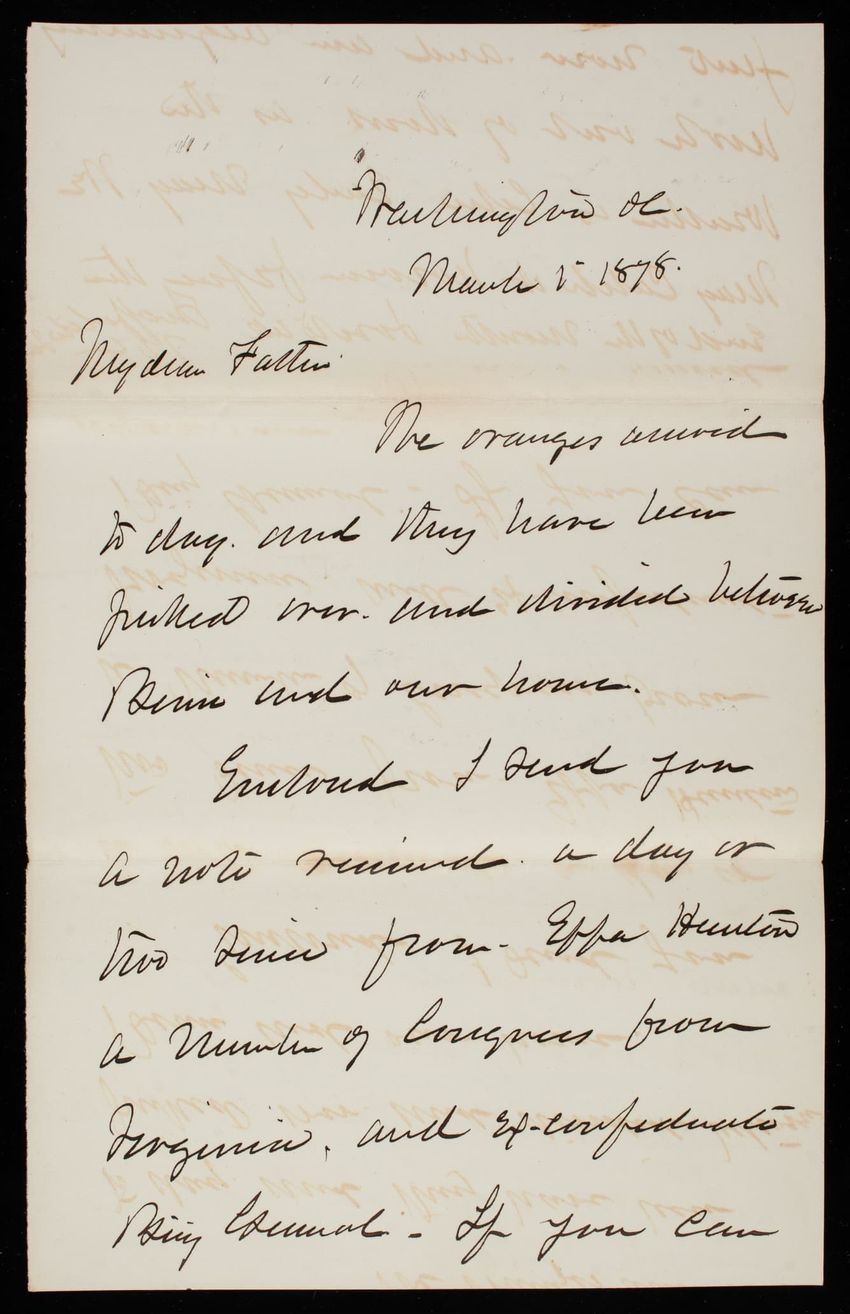 Washington DC.
March 5 1878.
My dear Father
The oranges arrived
to day. and they have been
picked over. and divided between
Bernie and our house.
Enclosed I send you
a note received. a day or
two since from - Eppa Hunton
a Member of Congress from
Virginia, and Ex-confederate
Brig General - If you can